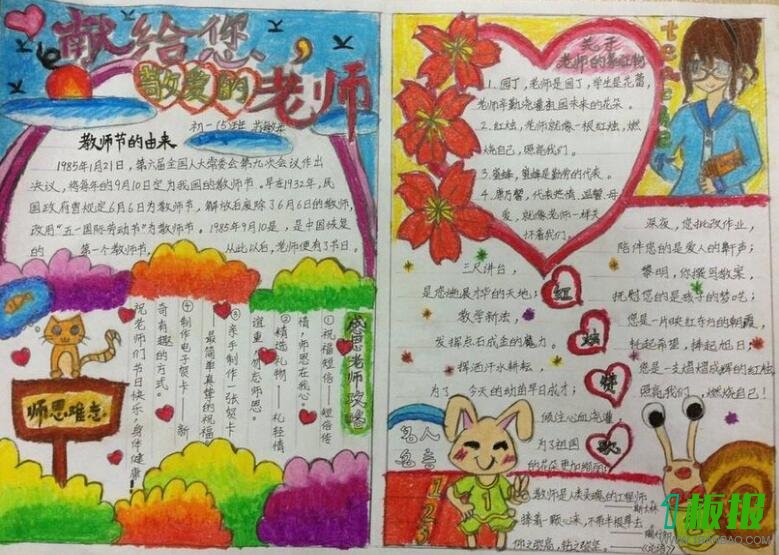 献给您，
敬爱的老师
初一(5)班
教师节的由来
1985年1月21日，第六届全国人大常委会第九次会议作出
决议，将每年的9月10日定为我国的教师节。早在1932年，民
国政府曾规定6月6日为教师节，解放后废除了6月6日的教师节，
改用“五一国际劳动节”为教师节。1985年9月10是，是中国恢复
的 第一个教师节， 从此以后，老师便有了节日。
感恩老师攻略
①祝福短信——短信传
情，师恩在我心。
②精选礼物——礼轻情
谊重，勿忘师恩。
③亲手制作一张贺卡
最简单真挚的祝福
④制作电子贺卡——新
奇有趣的方式。
祝老师们节日快乐，身体健康
师恩难忘
关于
老师的象征物
teacher
1.园丁，老师是园丁，学生是花蕾，
老师辛勤浇灌祖国未来的花朵。
2.红烛，老师就像一根红烛，燃
烧自己，照亮我们。
3.蜜蜂，蜜蜂是勤劳的代表。
4.康乃馨，代表热情、温馨、母
爱，就像老师一样关
怀着我们。
红烛赞歌
三尺讲台，
是您施展才华的天地；
教学新法，
发挥点石成金的魔力。
挥洒汗水耕耘，
为了 今天的幼苗早日成才；
倾注心血浇灌
为了祖国
的花朵更加绚丽。
深夜，您批改作业，
陪伴您的是爱人的鼾声；
黎明，你撰写教案，
抚慰您的是孩子的梦呓；
您是一片映红东方的朝霞，
托起希望，捧起旭日；
您是一支熠熠成辉的红烛
照亮我们，燃烧自己！
名人
名言
1
教师是人类灵魂的工程师
斯大林
捧着一颗心来，不带半根草去
仰之弥高，钻之弥坚。
1板报
WWW.1BANBAO.COM